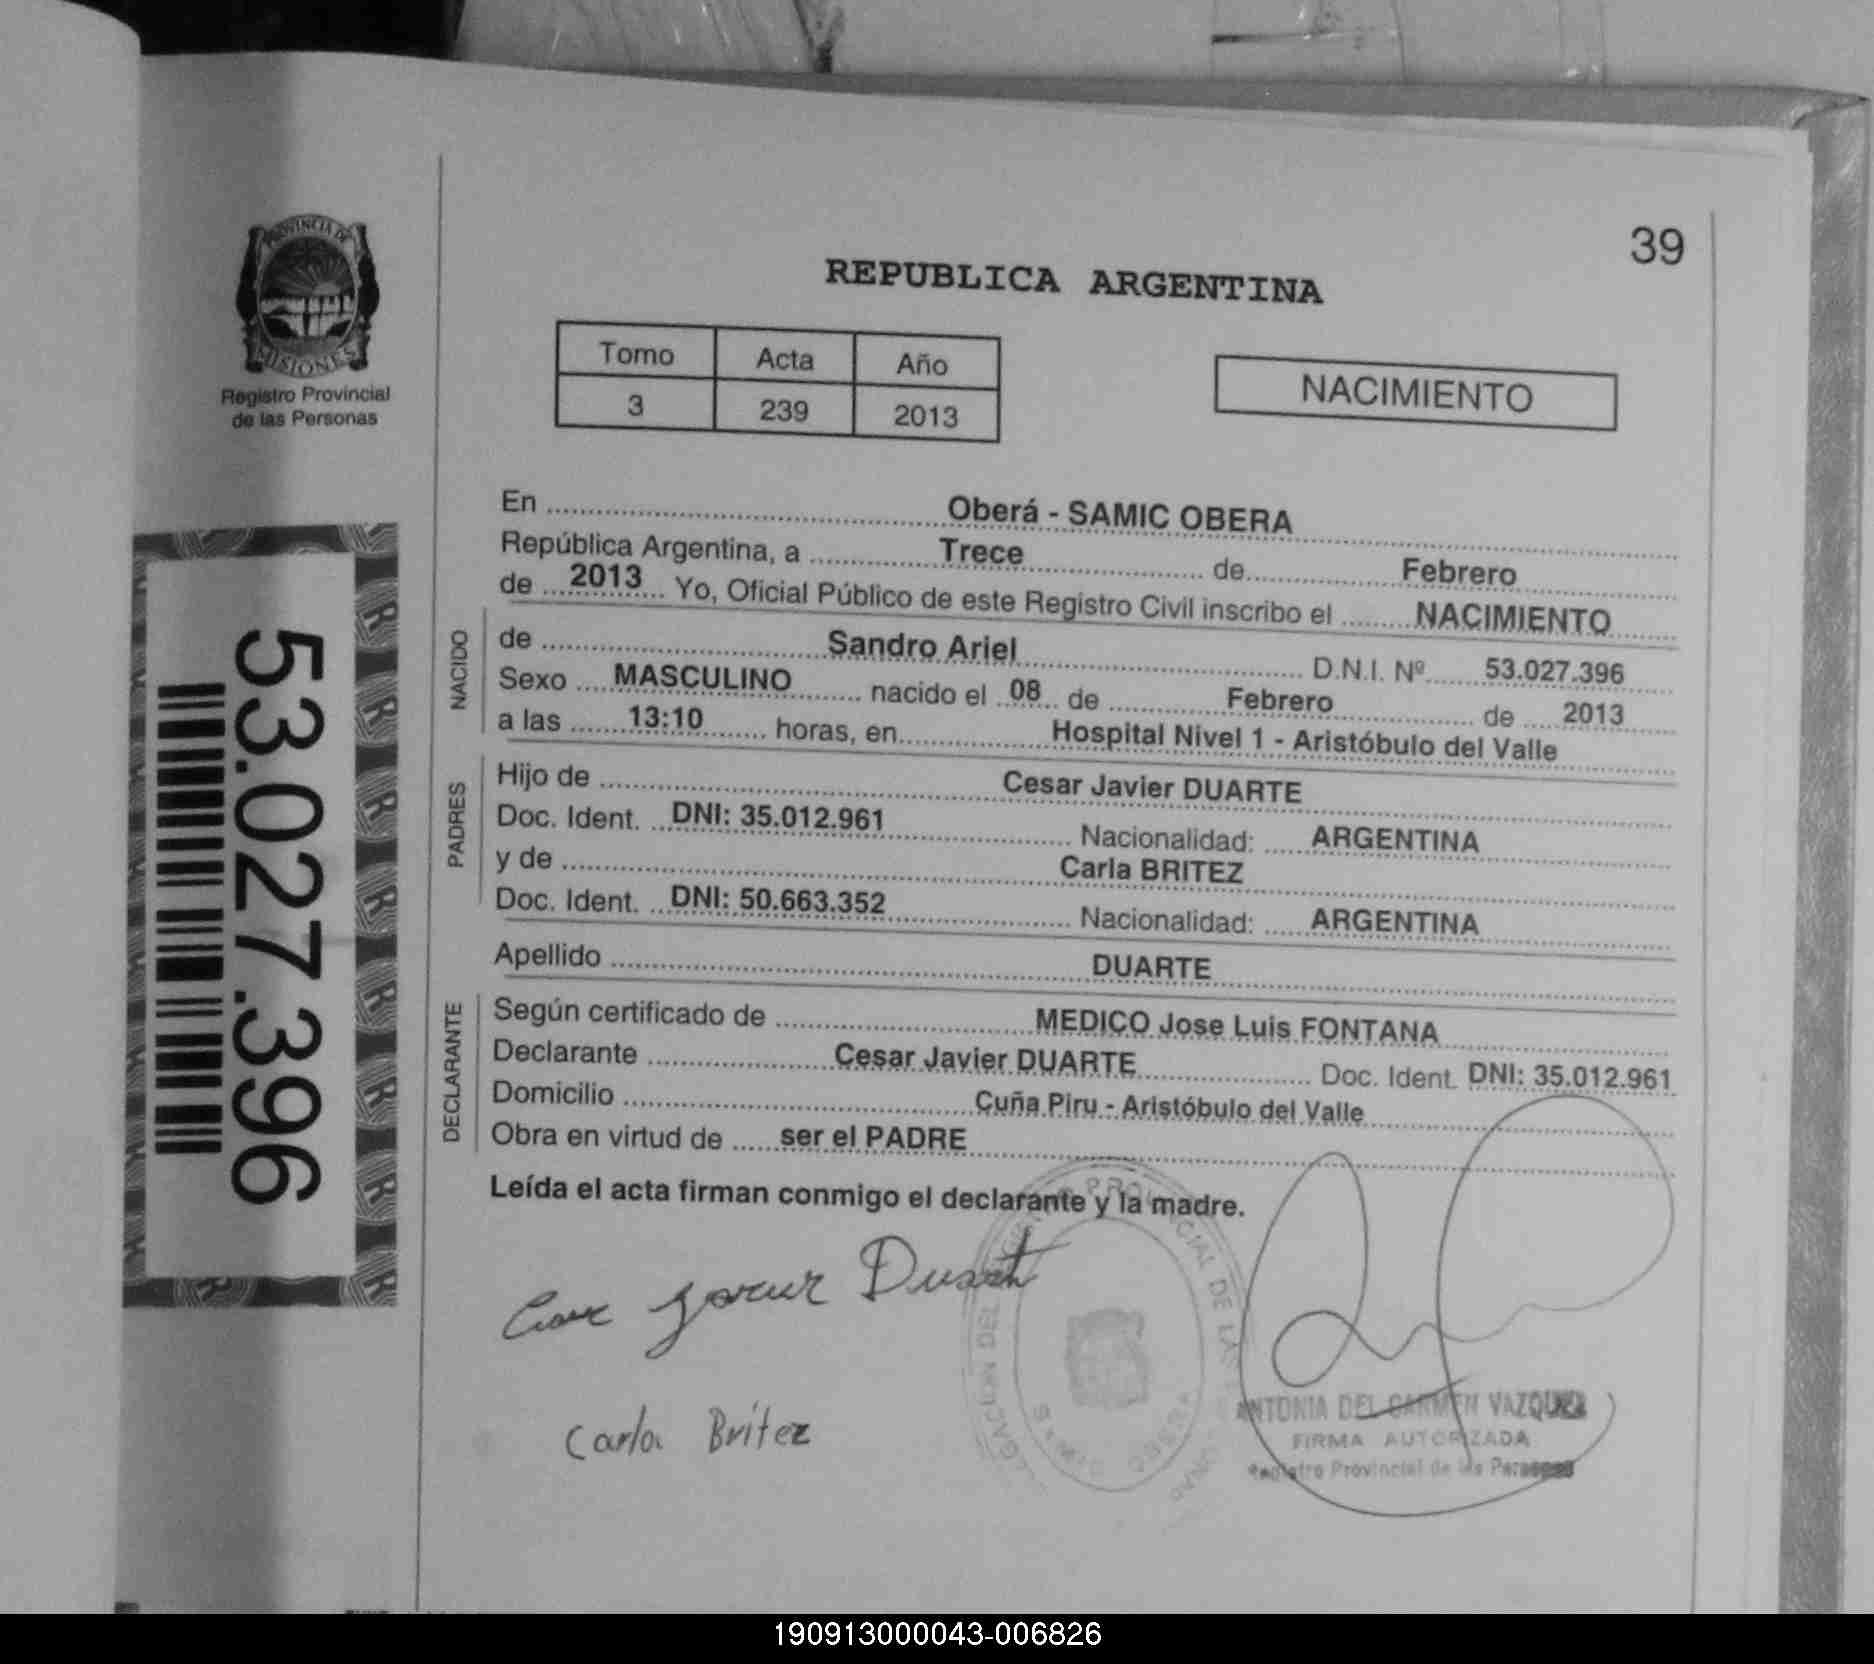 39
PROVINCIA DE
MISIONES
Registro Provincial
de las Personas
REPUBLICA ARGENTINA
Tomo Acta Año
3 239 2013
NACIMIENTO
53.027.396
En Oberá - SAMIC OBERA
República Argentina, a Trece de Febrero
de 2013 Yo, Oficial Público de este Registro Civil inscribo el NACIMIENTO
NACIDO
de Sandro Ariel D.N.I. Nº 53.027.396
Sexo MASCULINO nacido el 08 de Febrero de 2013
a las 13:10 horas, en Hospital Nivel 1 - Aristóbulo del Valle
PADRES
Hijo de Cesar Javier DUARTE
Doc. Ident. DNI: 35.012.961 Nacionalidad: ARGENTINA
y de Carla BRITEZ
Doc. Ident. DNI: 50.663.352 Nacionalidad: ARGENTINA
Apellido DUARTE
DECLARANTE
Según certificado de MEDICO Jose Luis FONTANA
Declarante Cesar Javier DUARTE Doc. Ident. DNI: 35.012.961
Domicilio Cuña Piru - Aristóbulo del Valle
Obra en virtud de ser el PADRE
Leída el acta firman conmigo el declarante y la madre.
Javier Duarte
Carla Britez
ANTONIA DEL CARMEN VAZQUEZ
FIRMA AUTORIZADA
Registro Provincial de las Personas
190913000043-006826